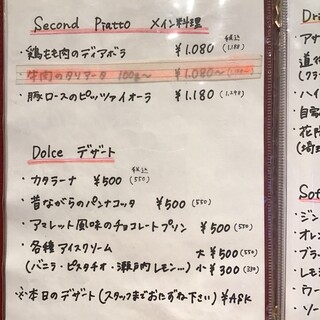 Second Piatto メイン料理
税込
・鶏もも肉のディアボラ ¥1.080 (1,188)
・牛肉のタリアータ 100g〜 ¥1.080〜
・豚ロースのピッツァイオーラ ¥1.180 (1,298)
Dolce デザート
税込
・カタラーナ ¥500 (550)
・昔ながらのパンナコッタ ¥500 (550)
・アマレット風味のチョコレートプリン ¥500 (550)
・各種アイスクリーム 大 ¥500 (550)
(バニラ・ピスタチオ・瀬戸内レモン…) 小 ¥300 (330)
※本日のデザート(スタッフまでおたずね下さい) ¥ASK
Dri
・アサ
道後
・ハイ
・自家
・花陽
(埼玉
Soft
・ジン
・オレ
・ブラ
・レモ
・ウー
・ソー